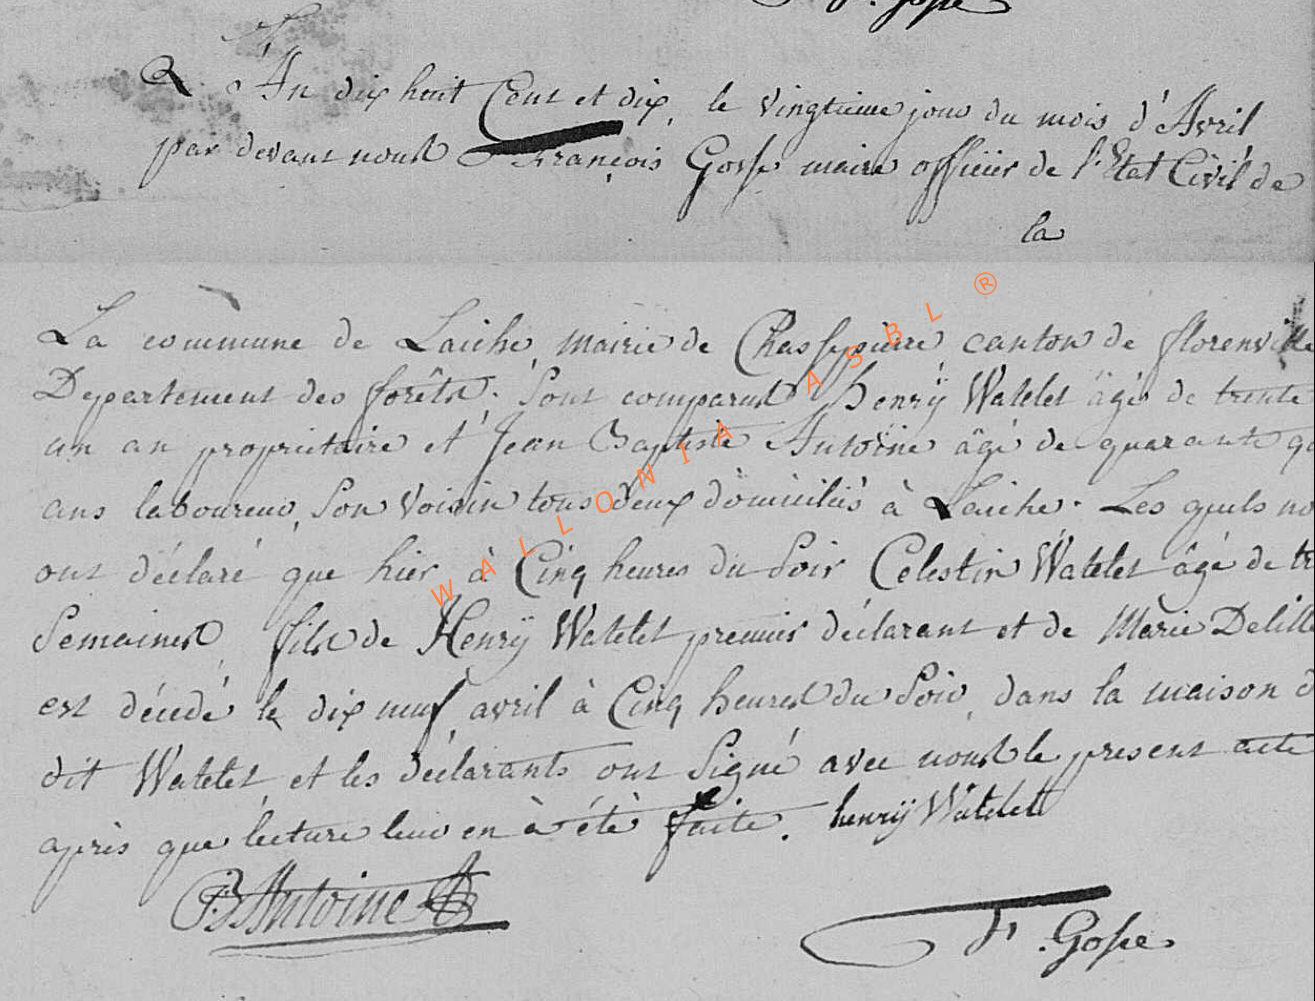 F. Gosse
L'An dix huit Cent et dix, le vingtieme jour du mois d'Avril
par devant nous François Gosse maire officier de l'Etat Civil de
la
La commune de Laiche, Mairie de Chassepierre canton de florenville
Departement des forêts. Sont comparus henrÿ Watelet âgé de trente
un an proprietaire et Jean Baptiste Antoine âgé de quarante
ans laboureur, son voisin tous deux domiciliés à Laiche. Les quels
ont déclaré que hier à Cinq heures du Soir Celestin Watelet âgé de
Semaines, fils de Henrÿ Watelet premier déclarant et de Marie Delille
est décédé le dix neuf avril à Cinq heures du Soir, dans la maison
dit Watelet, et les déclarants ont Signé avec nous le present acte
après que lecture leur en à été faite. henrÿ Watelet
WALLONIA ASBL ®
JB Antoine
F. Gosse